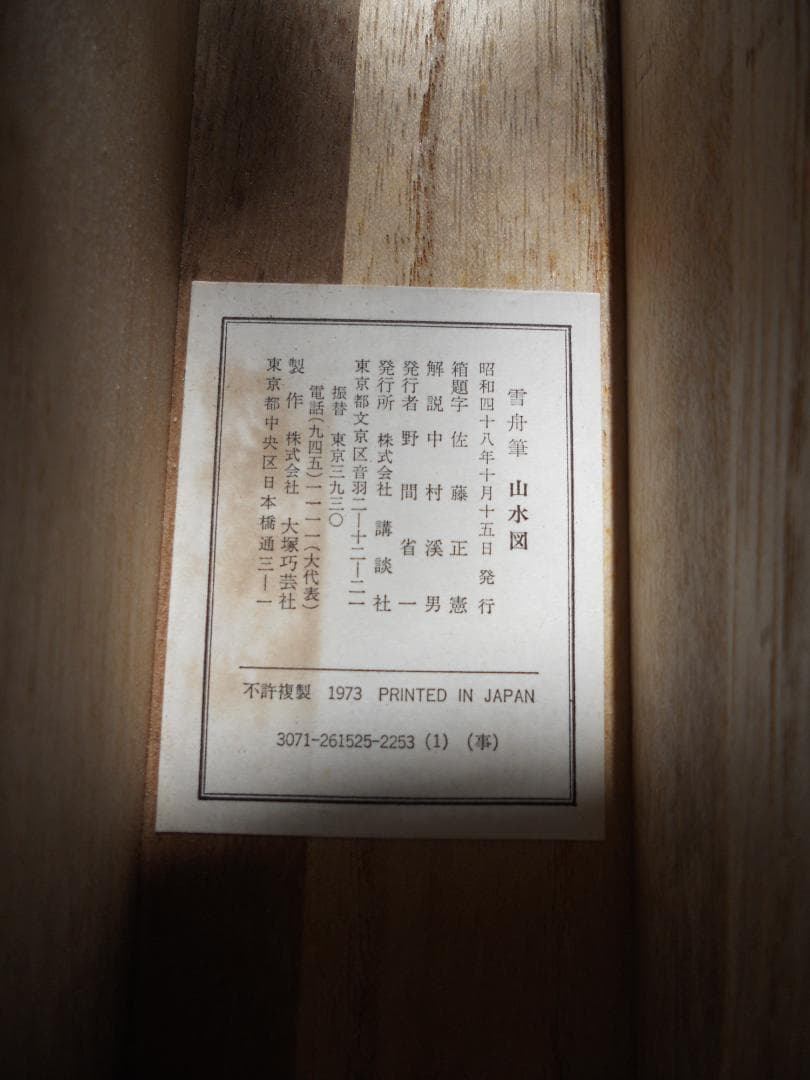 雪舟筆 山水図
昭和四十八年十月十五日 発行
箱題字 佐藤正憲
解説 中村溪男
発行者 野間省一
発行所 株式会社 講談社
東京都文京区音羽二―十二―二一
振替 東京三九三〇
電話(九四五)一一一一(大代表)
製作 株式会社 大塚巧芸社
東京都中央区日本橋通三―一
不許複製 1973 PRINTED IN JAPAN
3071-261525-2253 (1) (事)